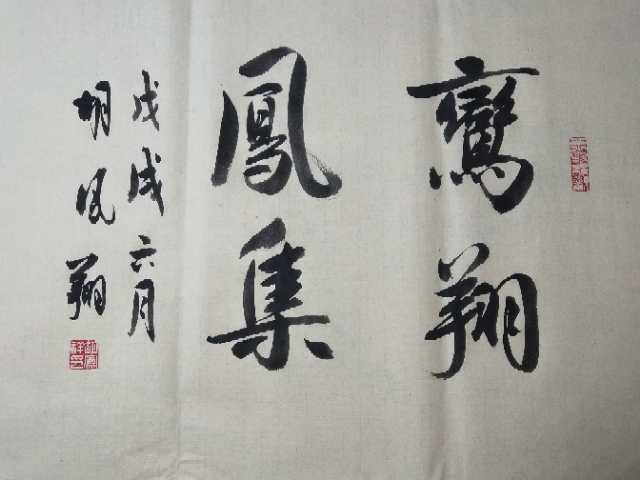 鸞翔
鳳集
戊戌六月
胡凤翔